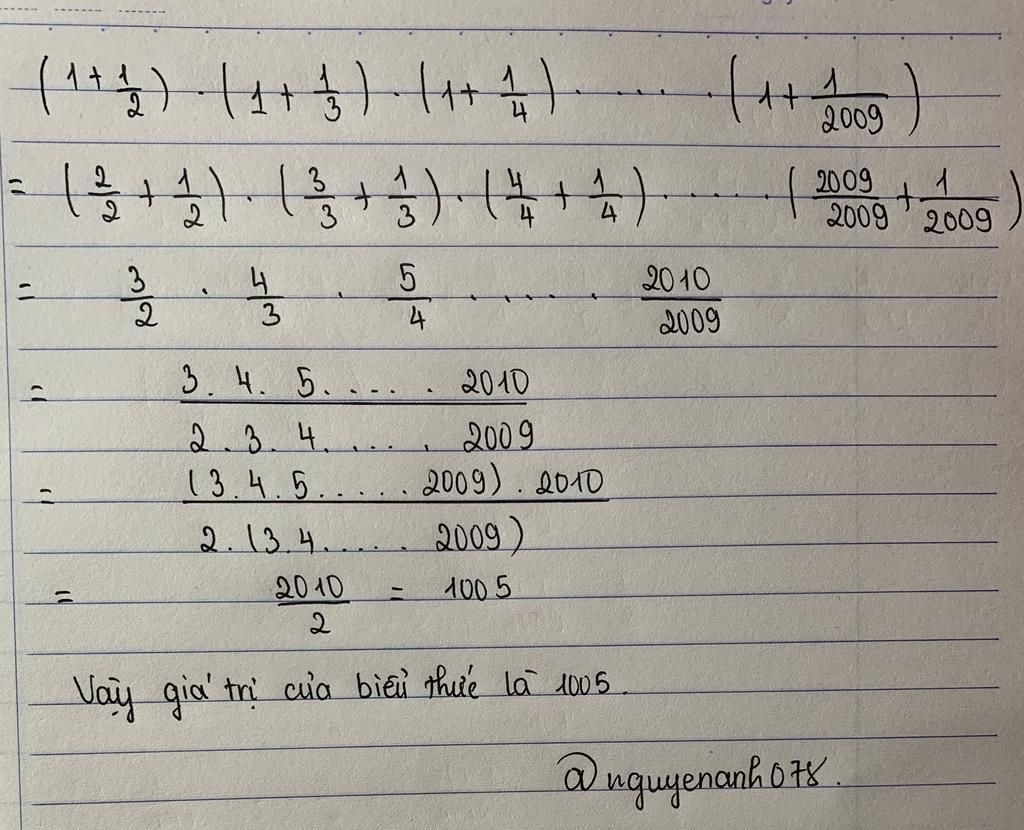 (1 + 1/2) . (1 + 1/3) . (1 + 1/4) . .... . (1 + 1/2009)
= (2/2 + 1/2) . (3/3 + 1/3) . (4/4 + 1/4) . .... . (2009/2009 + 1/2009)
= 3/2 . 4/3 . 5/4 . .... . 2010/2009
= 3. 4. 5. .... . 2010 / 2. 3. 4. .... . 2009
= (3. 4. 5. .... . 2009) . 2010 / 2. (3. 4. .... . 2009)
= 2010/2 = 1005
Vậy giá trị của biểu thức là 1005.
@nguyenanh078.